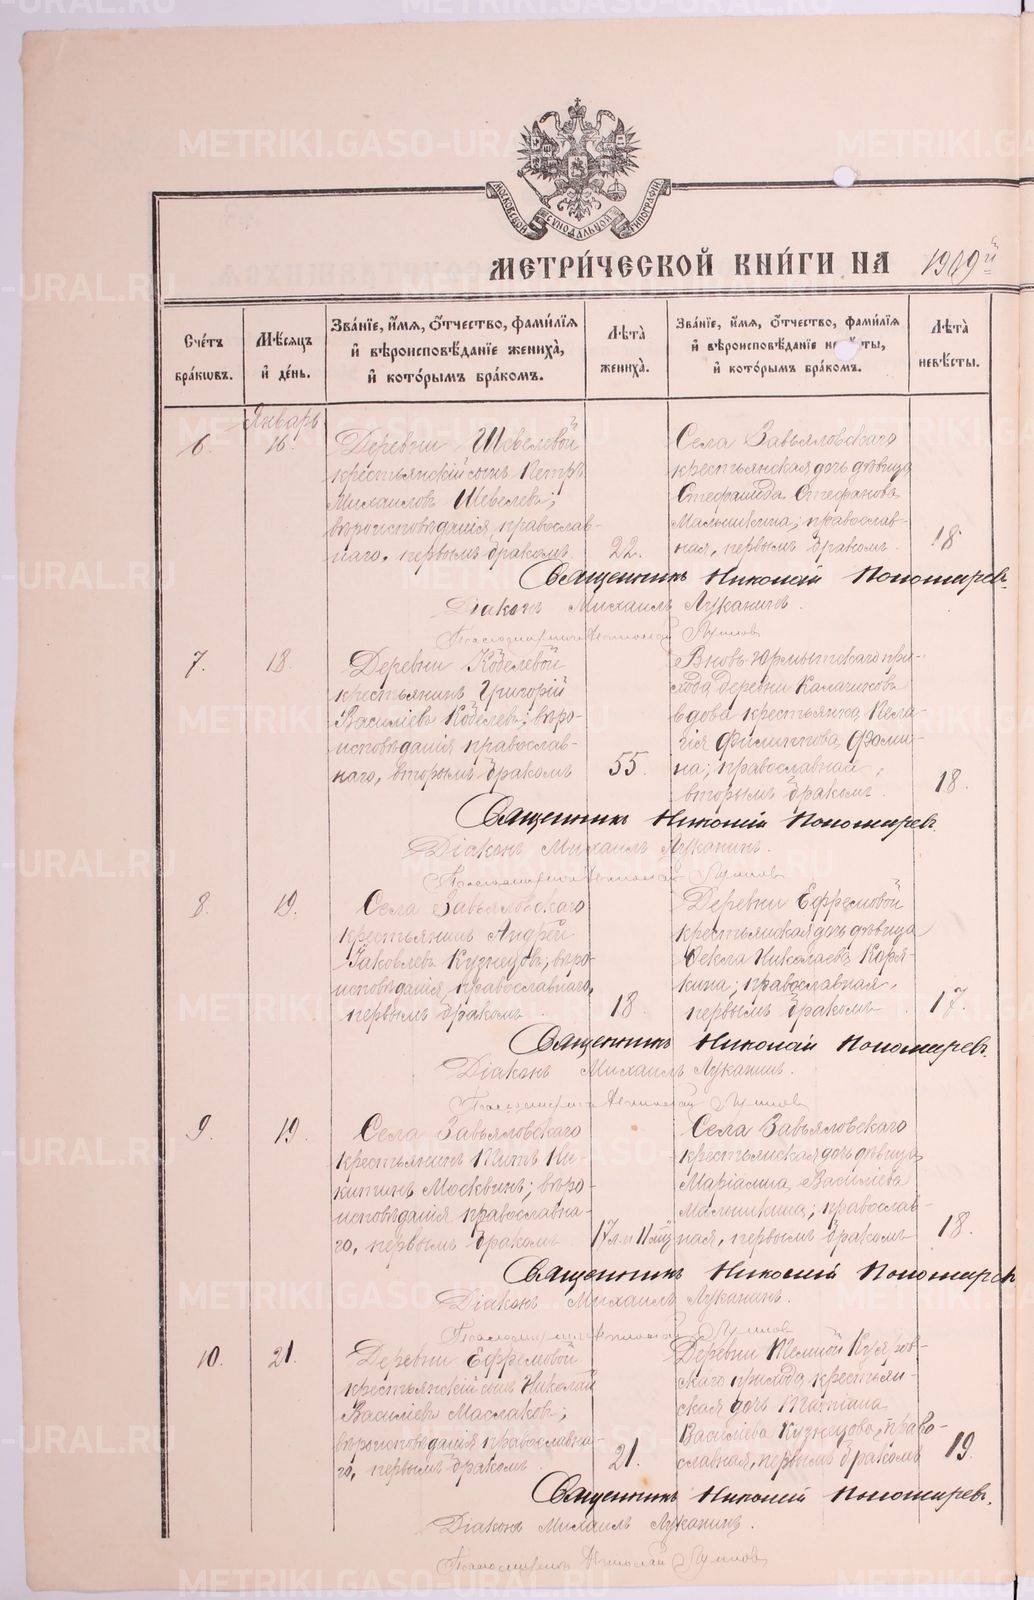 METRIKI.GASO-URAL.RU
МОСКОВСКОЙ СѴНОДАЛЬНОЙ ТИПОГРАФІИ
МЕТРИ́ЧЕСКОЙ КНИ́ГИ НА 1909й
Сче́тъ бра́кωвъ.
Мѣ́сяцъ и҆ де́нь.
Зва́нїе, и҆́мѧ, ѻ҆́тчество, фами́лїѧ и҆ вѣроисповѣ́данїе жениха̀, и҆ кото́рымъ бра́комъ.
Лѣта̀ жениха̀.
Зва́нїе, и҆́мѧ, ѻ҆́тчество, фами́лїѧ и҆ вѣроисповѣ́данїе не ты, и҆ кото́рымъ бра́комъ.
Лѣта̀ невѣ́сты.
Январь
6.
16.
Деревни Шевелевой
крестьянскій сынъ Петръ
Михаиловъ Шевелевъ;
вѣроисповѣданія православ-
наго, первымъ бракомъ
22.
Села Завьяловскаго
крестьянская дочь дѣвица
Стефанида Стефанова
Малышкина; православ-
ная, первымъ бракомъ.
18
Священникъ Николай Пономаревъ.
Діаконъ Михаилъ Луканинъ.
7.
18.
Деревни Кобелевой
крестьянинъ Григорій
Василіевъ Кобелевъ; вѣро-
исповѣданія православ-
наго, вторымъ бракомъ
55.
Вновь-Юрмытскаго при-
хода деревни Калачиковъ
вдова крестьянка Пела-
гія Филиппова Фоми-
на; православная,
вторымъ бракомъ.
18.
Священникъ Николай Пономаревъ.
Діаконъ Михаилъ Луканинъ.
8.
19.
Села Завьяловскаго
крестьянинъ Андрей
Іаковлевъ Кузнецовъ; вѣро-
исповѣданія православнаго,
первымъ бракомъ
18.
Деревни Ефремовой
крестьянская дочь дѣвица
Ѳекла Николаева Коря-
кина; православная,
первымъ бракомъ
17.
Священникъ Николай Пономаревъ.
Діаконъ Михаилъ Луканинъ.
9.
19.
Села Завьяловскаго
крестьянинъ Титъ Ни-
китинъ Москвинъ; вѣро-
исповѣданія православна-
го, первымъ бракомъ
17 л. и 11 м.
Села Завьяловскаго
крестьянская дочь дѣвица
Маріамна Василіева
Малышкина; православ-
ная, первымъ бракомъ
18.
Священникъ Николай Пономаревъ
Діаконъ Михаилъ Луканинъ.
10.
21.
Деревни Ефремовой
крестьянскій сынъ Николай
Василіевъ Маслаковъ;
вѣроисповѣданія православна-
го, первымъ бракомъ
21.
Деревни Темной Куяров-
скаго прихода крестьян-
ская дочь Татіана
Василіева Кузнецова, право-
славная, первымъ бракомъ
19.
Священникъ Николай Пономаревъ.
Діаконъ Михаилъ Луканинъ.